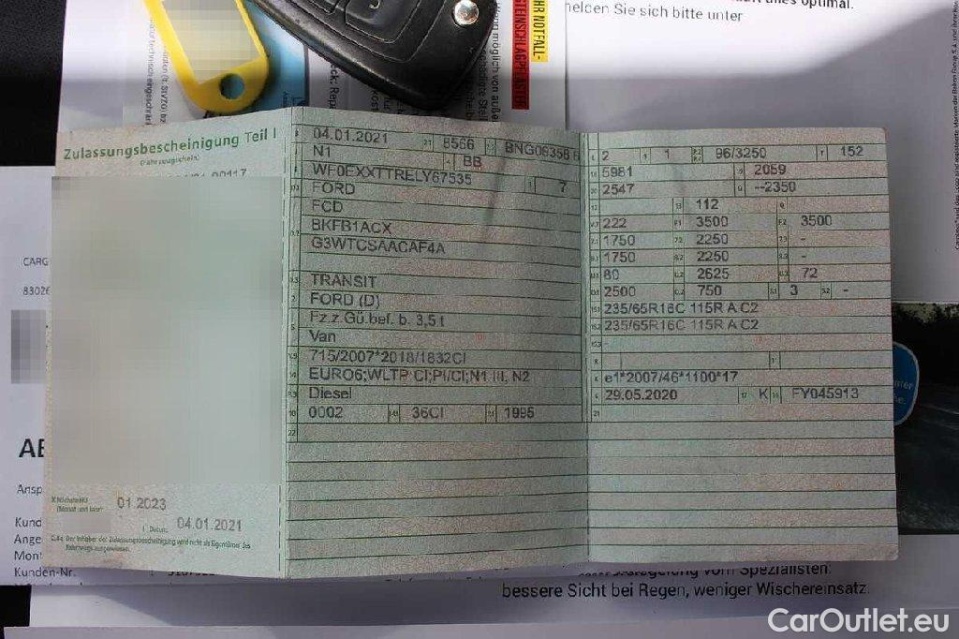 uft alles optimal.
helfen Sie sich bitte unter
HR NOTFALL-
Zulassungsbescheinigung Teil I
(Fahrzeugschein)
04.01.2021 8566 BNG06356 6
N1 BB
WF0EXXTTRELY67535 7
FORD
FCD
BKFB1ACX
G3WTCSAACAF4A
TRANSIT
FORD (D)
Fz.z.Gü.bef. b. 3,5 t
Van
715/2007*2018/1832CI
EURO6;WLTP CI;PI/CI;N1 III, N2
Diesel
0002 36CI 1995
22
2 1 96/3250 152
5981 2059
2547 --2350
112
222 3500 3500
1750 2250 -
1750 2250 -
80 2625 72
2500 750 3 -
235/65R16C 115R A C2
235/65R16C 115R A C2
-
e1*2007/46*1100*17
29.05.2020 K FY045913
01.2023
04.01.2021
CARG
83026
AB
Ansp
Kund
Ange
Mont
Kunden-Nr.
vom Spezialisten:
bessere Sicht bei Regen, weniger Wischereinsatz.
CarOutlet.eu